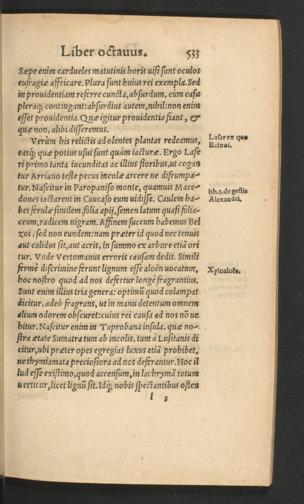 Liber octauus. 533
Sæpe enim cardueles matutinis horis uisi sunt oculos
eufragiæ affricare. Plura sunt huius rei exempla. Sed
in prouidentiam referre cuncta, absurdum, cum casu
pleraq; contingant: absurdius autem, nihil: non enim
esset prouidentia. Quæ igitur prouidentia fiant, &
quæ non, alibi disseremus.
Verum his relictis ad olentes plantas redeamus,
Laser ex quo
Belzoi.
easq; quæ potius usui sunt quàm iacturæ. Ergo Lase
ri primo tanta iucunditas ac illius floribus, ut cogan
tur Arriano teste pecus incolæ arcere ne disrumpa-
tur. Nascitur in Paropaniso monte, quamuis Mace-
lib. 3. de gestis
Alexandri.
dones iactarent in Caucaso eum uidisse. Caulem ha-
bet ferulæ similem, folia apij, semen latum quasi folia-
ceum, radicem nigram. Affinem succum habemus Bel
zoi. sed non eundem: nam præter id quod nec tenuis
aut calidus sit, aut acris, in summo ex arbore etiã ori
tur. Vnde Vertomanus erroris causam dedit. Simili
fermè discrimine ferunt lignum esse aloën uocatum,
Xyloaloës.
hoc nostro quod ad nos defertur longè fragrantius.
Sunt enim illius tria genera: optimũ quod colampat
dicitur, adeò fragrans, ut in manu detentum omnem
alium odorem obscuret: cuius rei causa ad nos nõ ue
hitur. Nascitur enim in Taprobana insula, quæ no-
stra ætate Sumatra tum ab incolis, tum à Lusitanis di
citur, ubi præter opes egregias luxus etiã prohibet,
ne thymiamata preciosiora ad nos deferantur. Hoc il
lud esse existimo, quod accensum, in lachrymã totum
uertitur, licet lignũ sit. Idq; nobis spectantibus osten